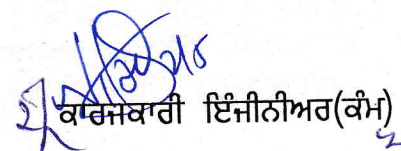 ਕਾਰਜਕਾਰੀ ਇੰਜੀਨੀਅਰ(ਕੰਮ)